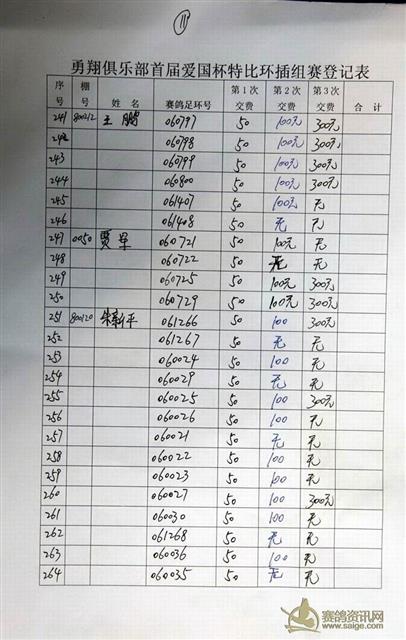 11
勇翔俱乐部首届爱国杯特比环插组赛登记表
序号 棚号 姓名 赛鸽足环号 第1次交费 第2次交费 第3次交费 合计
241 800212 王鹏 060797 50 100元 300元
242 060798 50 100元 300元
243 060799 50 100元 300元
244 060800 50 100元 300元
245 061407 50 100元 无
246 061408 50 无 无
247 0050 贾军 060721 50 100元 无
248 060722 50 无 无
249 060725 50 100元 300元
250 060729 50 100元 300元
251 800120 朱新平 061266 50 100 300元
252 061267 50 无 无
253 060024 50 100 无
254 060029 50 无 无
255 060025 50 100 300元
256 060026 50 100 无
257 060021 50 无 无
258 060022 50 100 无
259 060023 50 100 无
260 060027 50 100 300元
261 060030 50 100 无
262 061268 50 无 无
263 060036 50 100 无
264 060035 50 无 无
赛鸽资讯网
www.saige.com